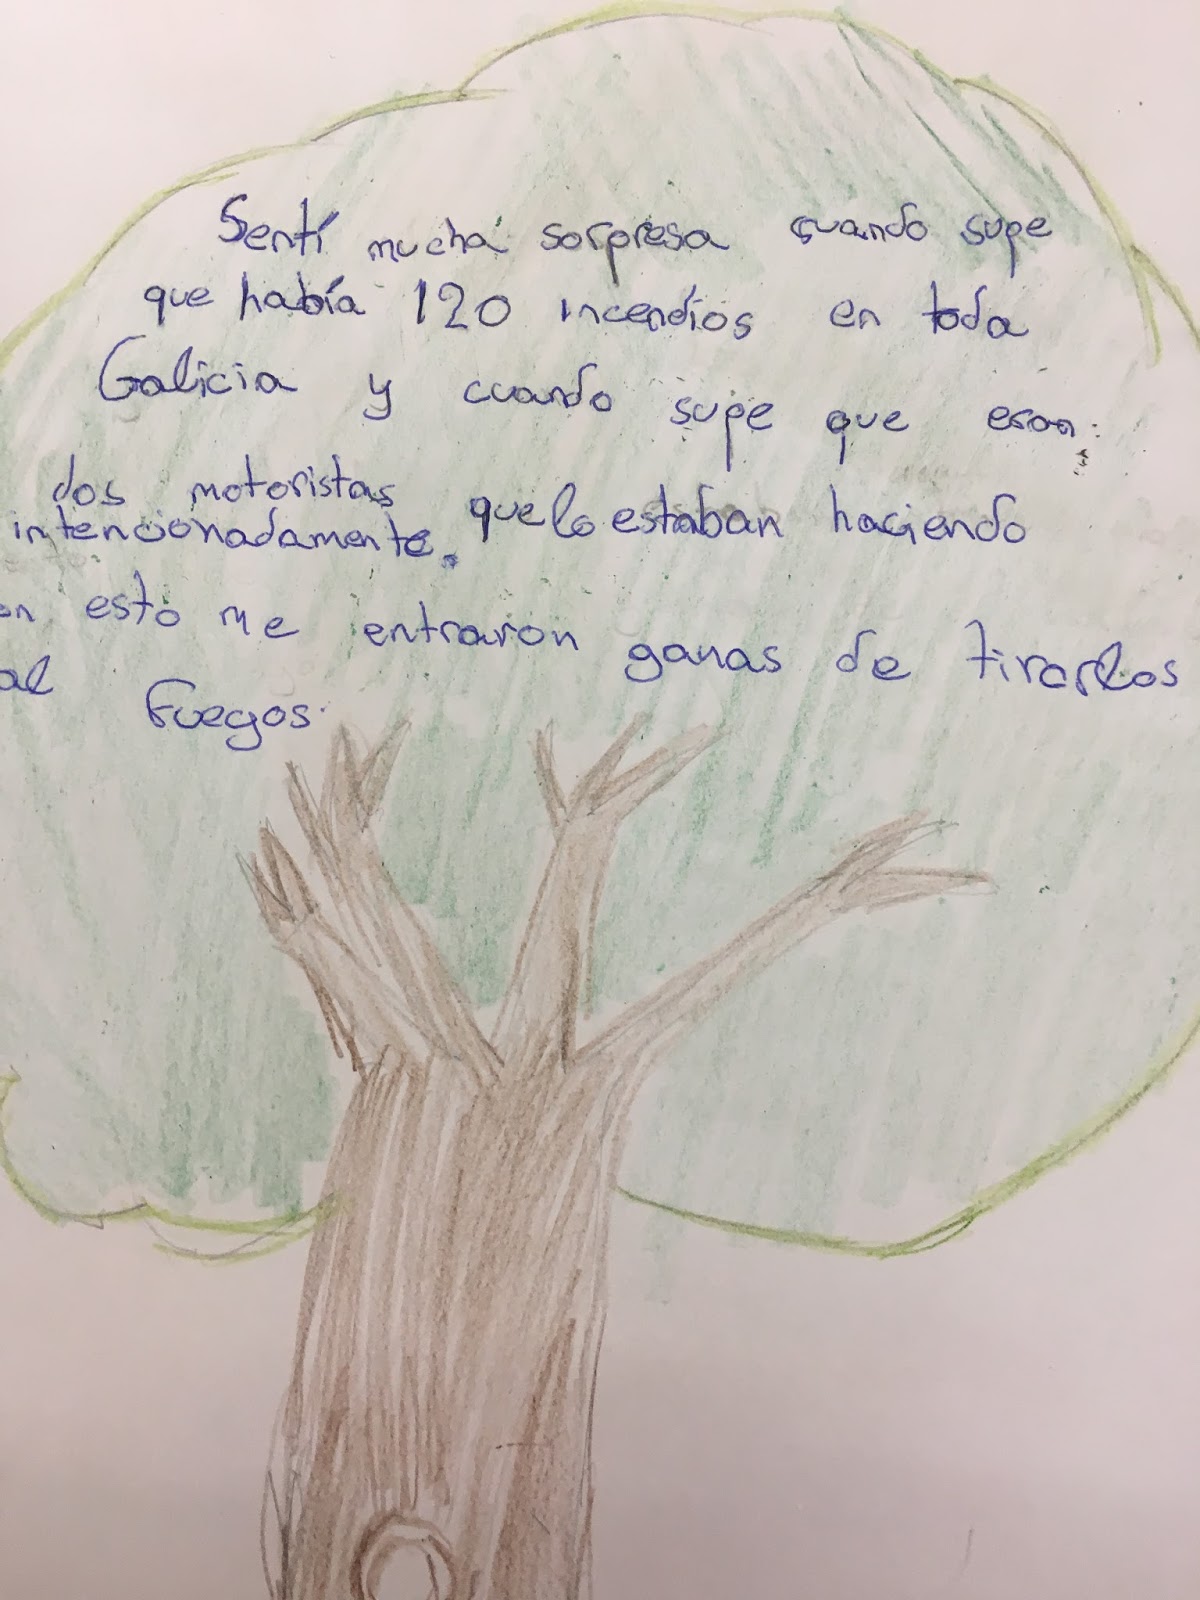 Sentí mucha sorpresa cuando supe
que había 120 incendios en toda
Galicia y cuando supe que eran
dos motoristas que lo estaban haciendo
intencionadamente.
on esto me entraron ganas de tirarlos
al fuegos.